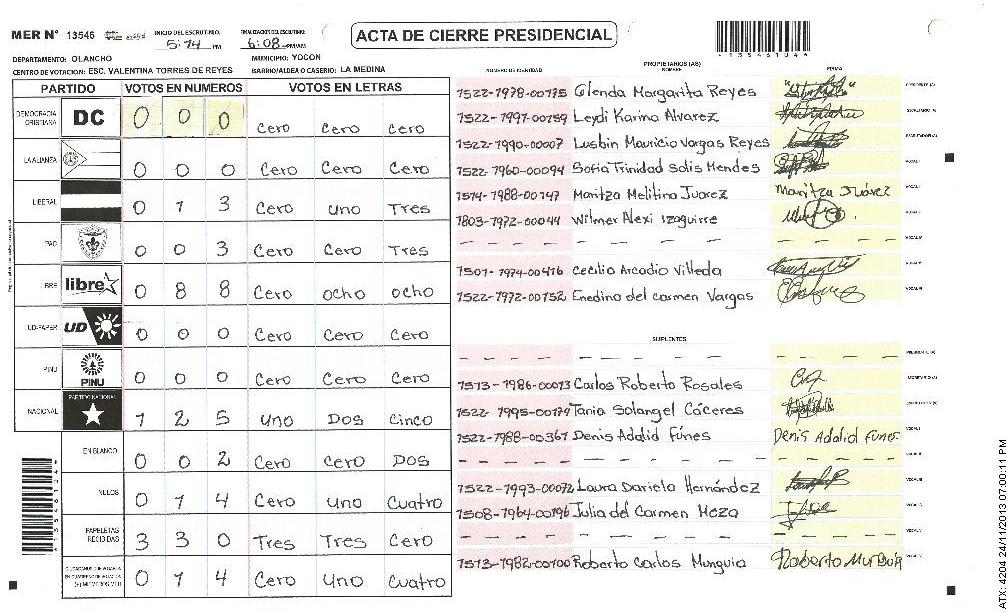 MER N° 13546 INICIO DEL ESCRUTINIO. 5:14 PM FINALIZACION DEL ESCRUTINIO. 6:08 PM/AM
ACTA DE CIERRE PRESIDENCIAL
4135461044
DEPARTAMENTO: OLANCHO MUNICIPIO: YOCON
CENTRO DE VOTACION: ESC. VALENTINA TORRES DE REYES BARRIO/ALDEA O CASERIO: LA MEDINA
PARTIDO VOTOS EN NUMEROS VOTOS EN LETRAS
DEMOCRACIA CRISTIANA DC 0 0 0 Cero Cero Cero
LA ALIANZA 0 0 0 Cero Cero Cero
LIBERAL 0 1 3 Cero uno Tres
PAC 0 0 3 Cero Cero Tres
libre 0 8 8 Cero ocho ocho
UD-FAPER UD 0 0 0 Cero Cero Cero
PINU PINU 0 0 0 Cero Cero Cero
NACIONAL PARTIDO NACIONAL 1 2 5 Uno Dos Cinco
EN BLANCO 0 0 2 Cero Cero Dos
NULOS 0 1 4 Cero uno Cuatro
PAPELETAS RECIBIDAS 3 3 0 Tres Tres Cero
0 1 4 Cero uno Cuatro
PROPIETARIOS (AS)
NUMERO DE IDENTIDAD NOMBRE FIRMA
1522-1978-00175 Glenda Margarita Reyes PRESIDENTE (A)
1522-1997-00159 Leydi Karina Alvarez SECRETARIO (A)
1522-1990-00007 Lusbin Mauricio Vargas Reyes ESCRUTADOR (A)
1522-1960-00094 Sofia Trinidad Solis Mendes VOCAL I
1514-1988-00147 Maritza Melitina Juarez Maritza Juárez VOCAL II
1803-1972-00044 Wilmer Alexi Izaguirre
1501-1974-00416 Cecilio Arcadio Villeda
1522-1972-00152 Enedina del carmen Vargas
SUPLENTES
PRESIDENTE (A)
1513-1986-00013 Carlos Roberto Rosales SECRETARIO (A)
1522-1995-00174 Tania Solangel Cáceres
1522-1988-00361 Denis Adalid Fúnes Denis Adalid Funes
1522-1993-00072 Laura Dariela Hernández
1508-1964-00196 Julia del Carmen Meza
1513-1982-00100 Roberto Carlos Munguia Roberto Munguia
ATX: 4204 24/11/2013 07:00:11 PM